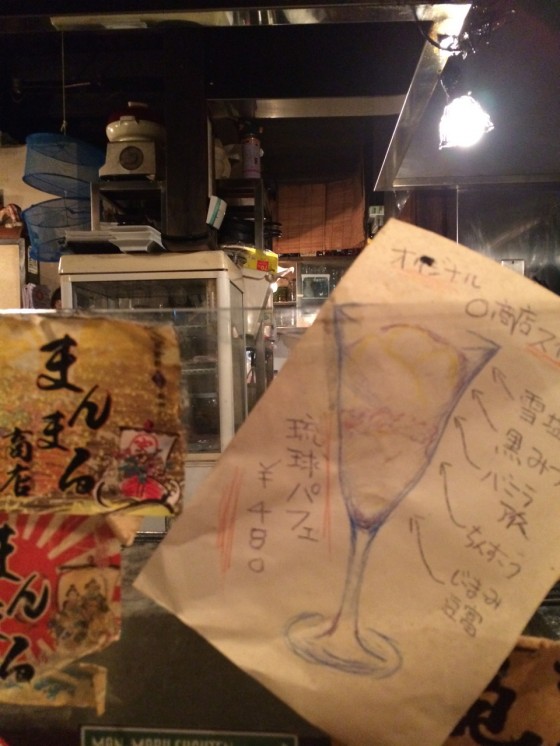 オリジナル
〇商店ス
琉球パフェ
¥480
雪塩
黒みつ
バニラ
ちんすこう
じーまみ
豆富
まんまる
商店
まんまる
MAN MARU SHOUTEN